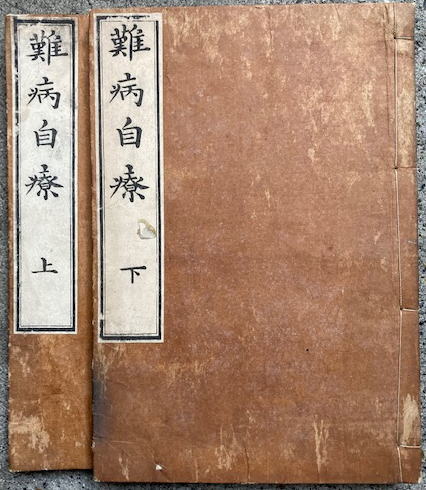 難病自療 下
難病自療 上